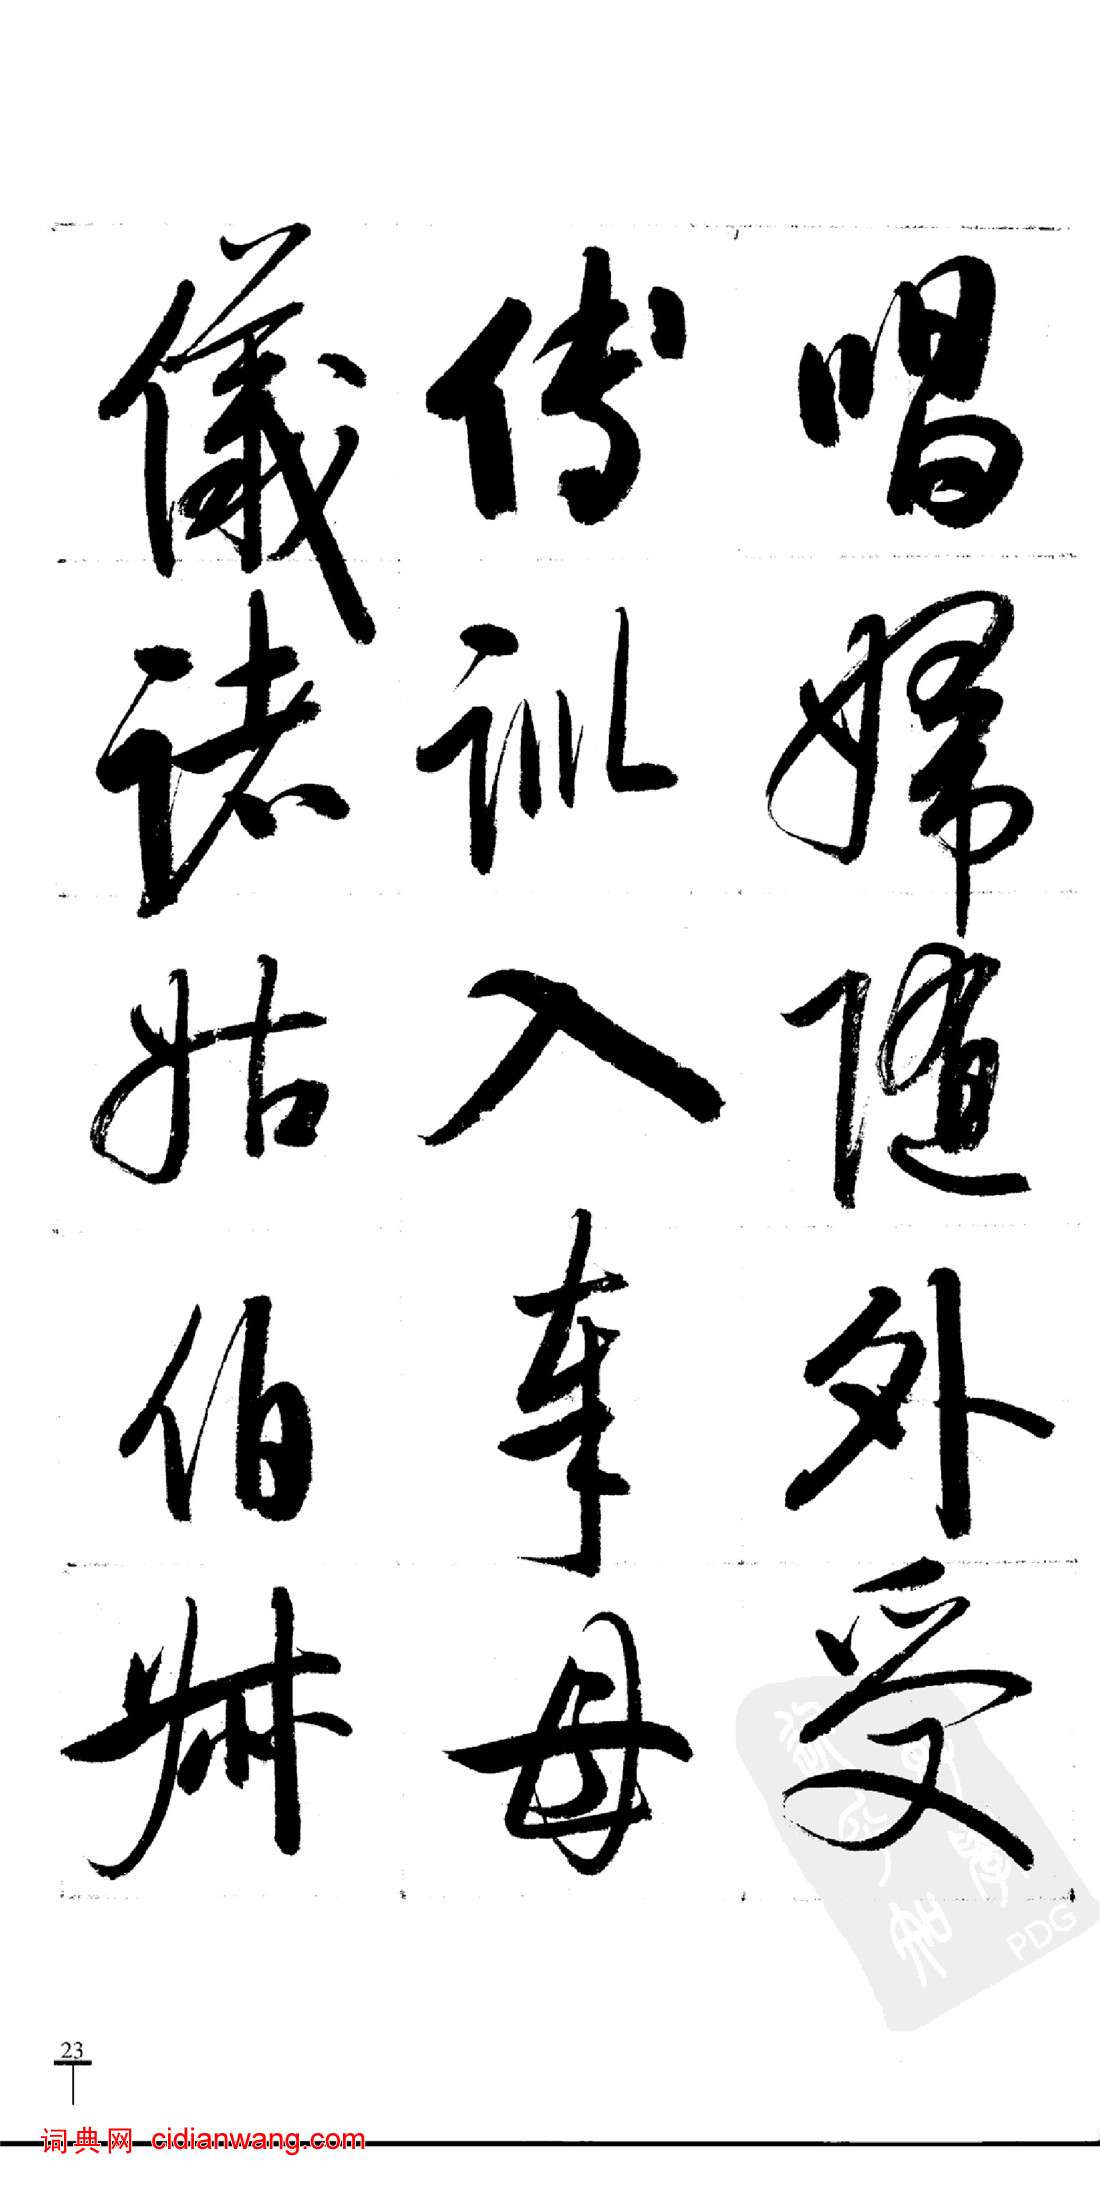 唱婦随外受
傅訓入奉母
儀諸姑伯叔
PDG
23
词典网 cidianwang.com